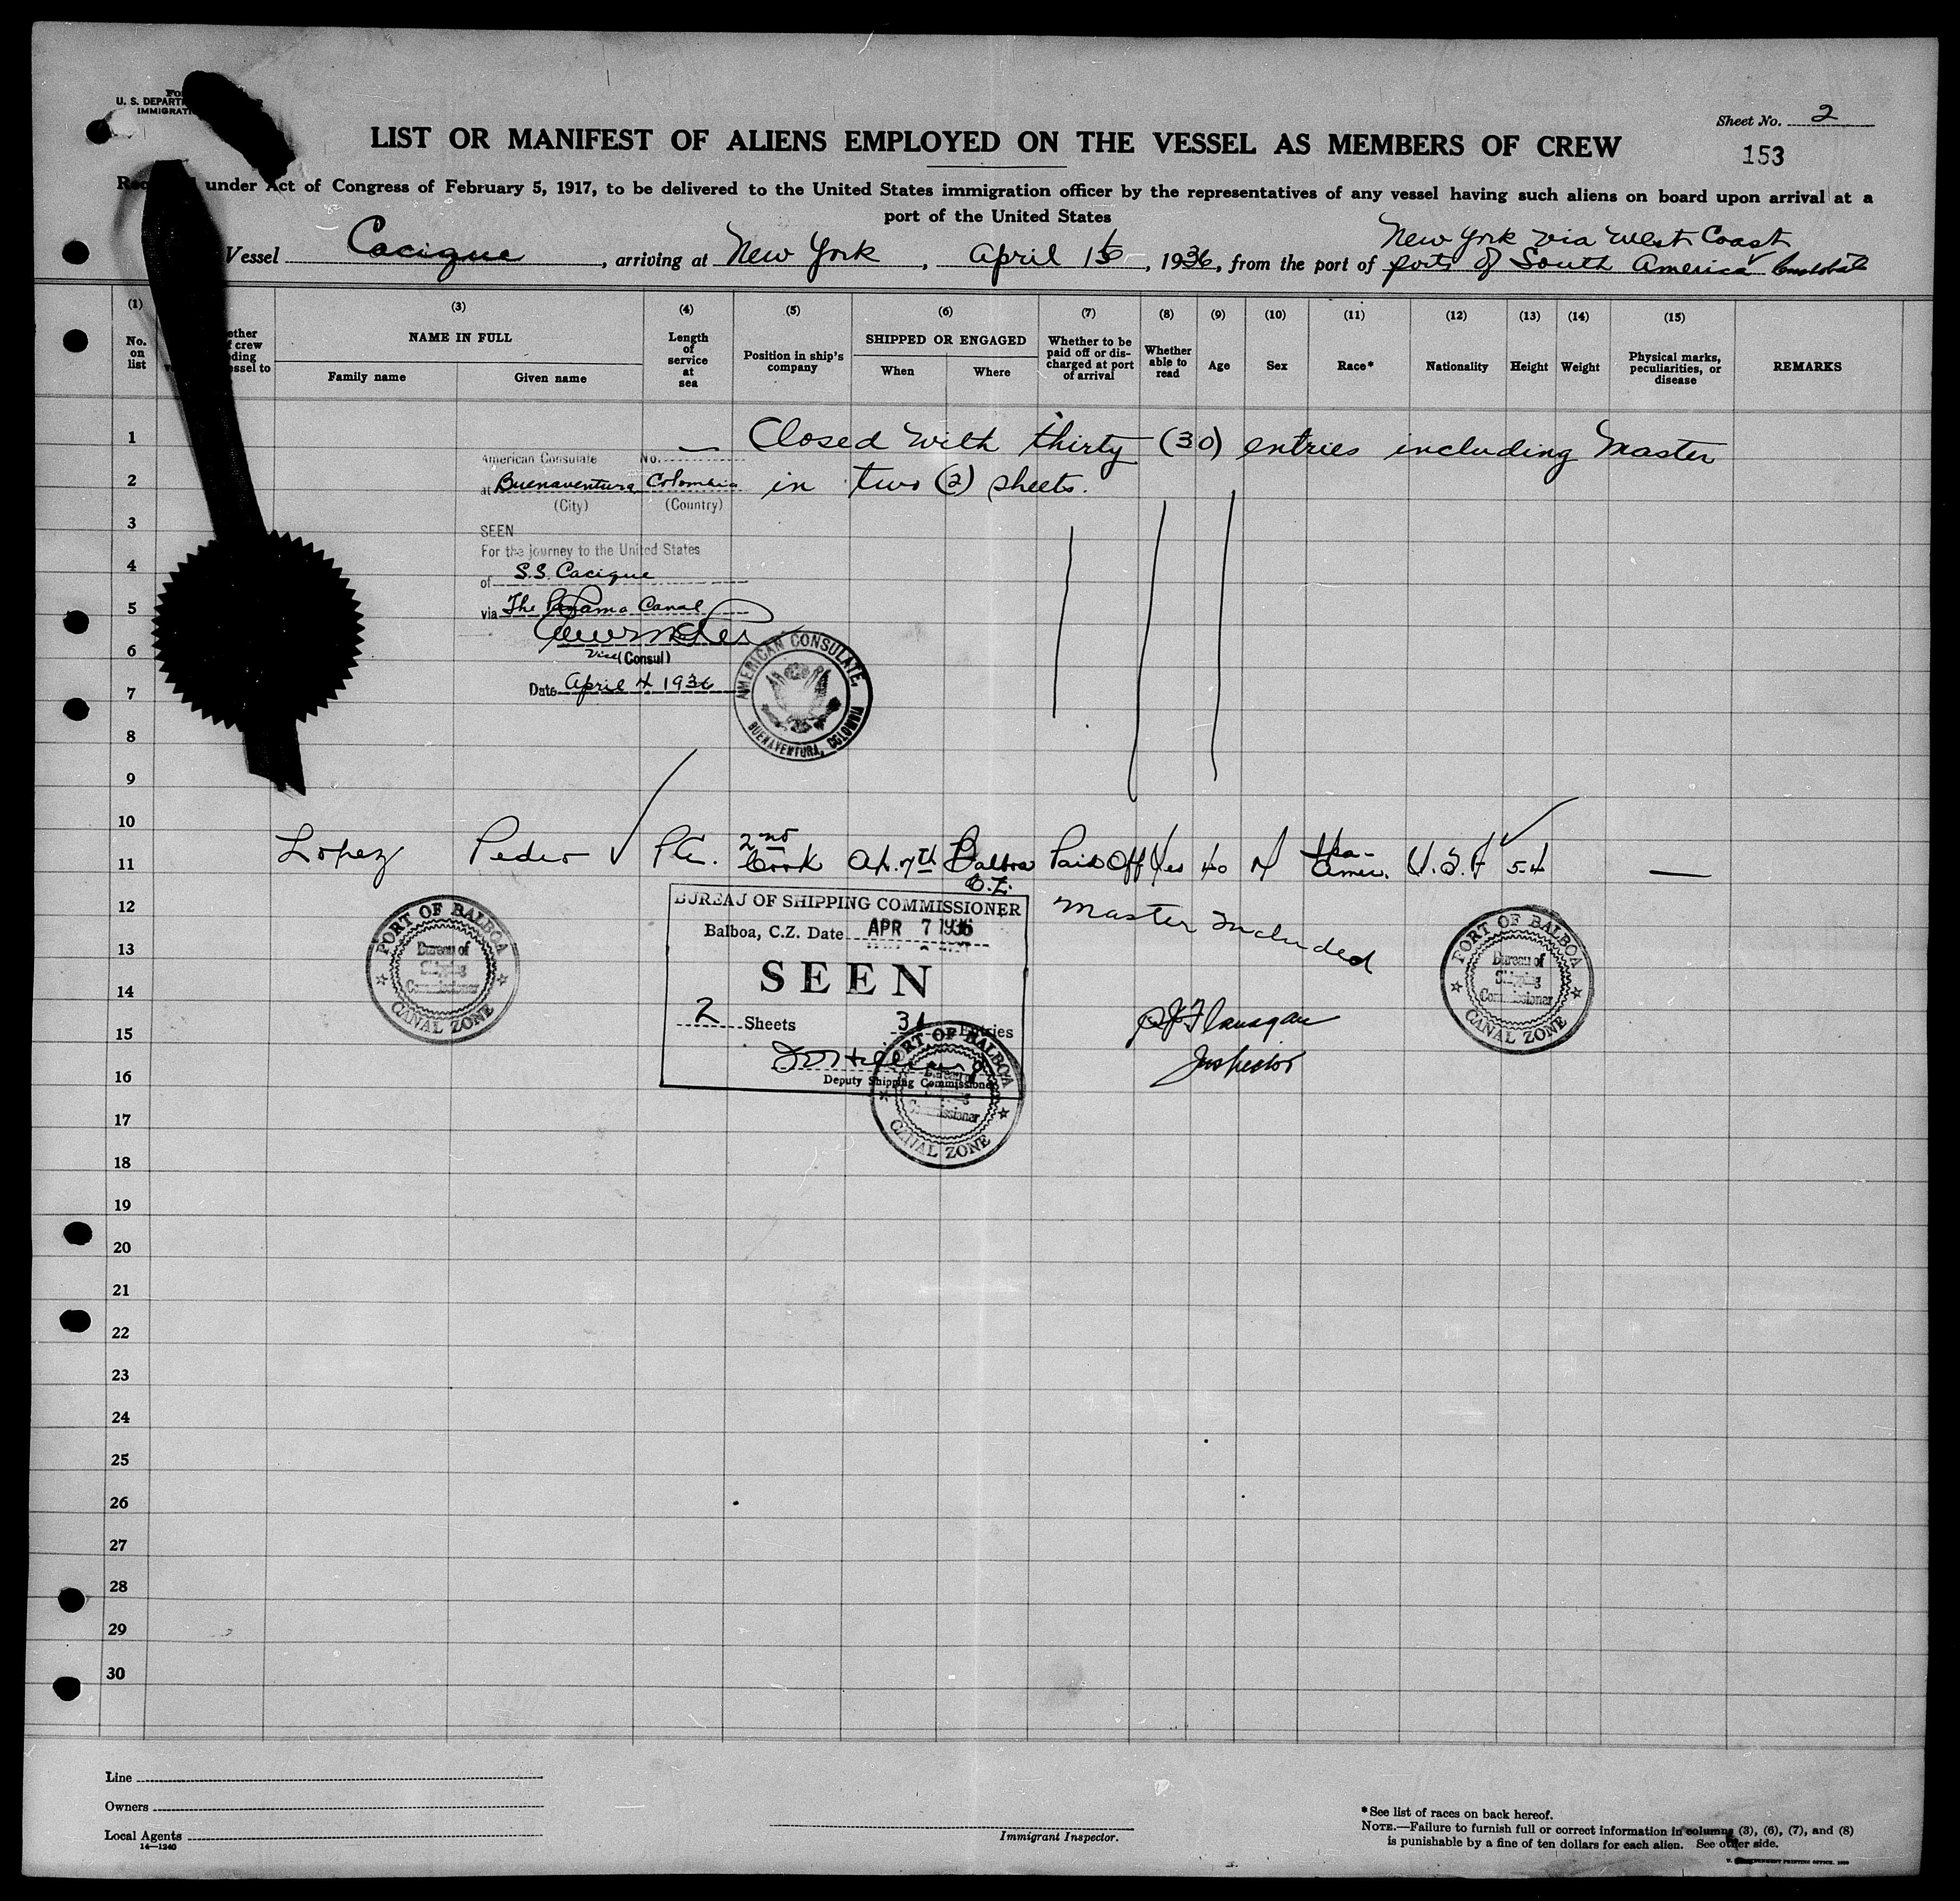 U. S. DEPART
IMMIGRATI
Sheet No. 2
LIST OR MANIFEST OF ALIENS EMPLOYED ON THE VESSEL AS MEMBERS OF CREW
153
under Act of Congress of February 5, 1917, to be delivered to the United States immigration officer by the representatives of any vessel having such aliens on board upon arrival at a
port of the United States
New York via West Coast
Vessel Cacique, arriving at New York, April 15, 1936, from the port of ports of South America
(1) (3) (4) (5) (6) (7) (8) (9) (10) (11) (12) (13) (14) (15)
No. on list
NAME IN FULL
Family name
Given name
Length of service at sea
Position in ship's company
SHIPPED OR ENGAGED
When
Where
Whether to be paid off or discharged at port of arrival
Whether able to read
Age
Sex
Race*
Nationality
Height
Weight
Physical marks, peculiarities, or disease
REMARKS
1
— Closed with thirty (30) entries including Master
American Consulate No.
2
at Buenaventura, Colombia in two (2) sheets.
(City) (Country)
3
SEEN
For the journey to the United States
4
of S.S. Cacique
5
via The Panama Canal
6
Vice (Consul)
7
Date April 4 1936
AMERICAN CONSULATE,
BUENAVENTURA, COLOMBIA
8
9
10
11
Lopez Pedro 2nd Cook Ap. 7th Balboa C.Z. Paid Off Yes 40 M Spa-Amer. U.S.A 5-4 —
12
BUREAU OF SHIPPING COMMISSIONER
Master Included
Balboa, C.Z. Date APR 7 1936
13
SEEN
14
2 Sheets 31 Entries
15
Flanagan
Inspector
16
Deputy Shipping Commissioner
PORT OF BALBOA
Bureau of
Shipping
Commissioner
CANAL ZONE
PORT OF BALBOA
Bureau of
Shipping
Commissioner
CANAL ZONE
PORT OF BALBOA
Bureau of
Shipping
Commissioner
CANAL ZONE
17
18
19
20
21
22
23
24
25
26
27
28
29
30
Line
Owners
Local Agents
14—1240
Immigrant Inspector.
*See list of races on back hereof.
NOTE.—Failure to furnish full or correct information in columns (3), (6), (7), and (8)
is punishable by a fine of ten dollars for each alien. See other side.